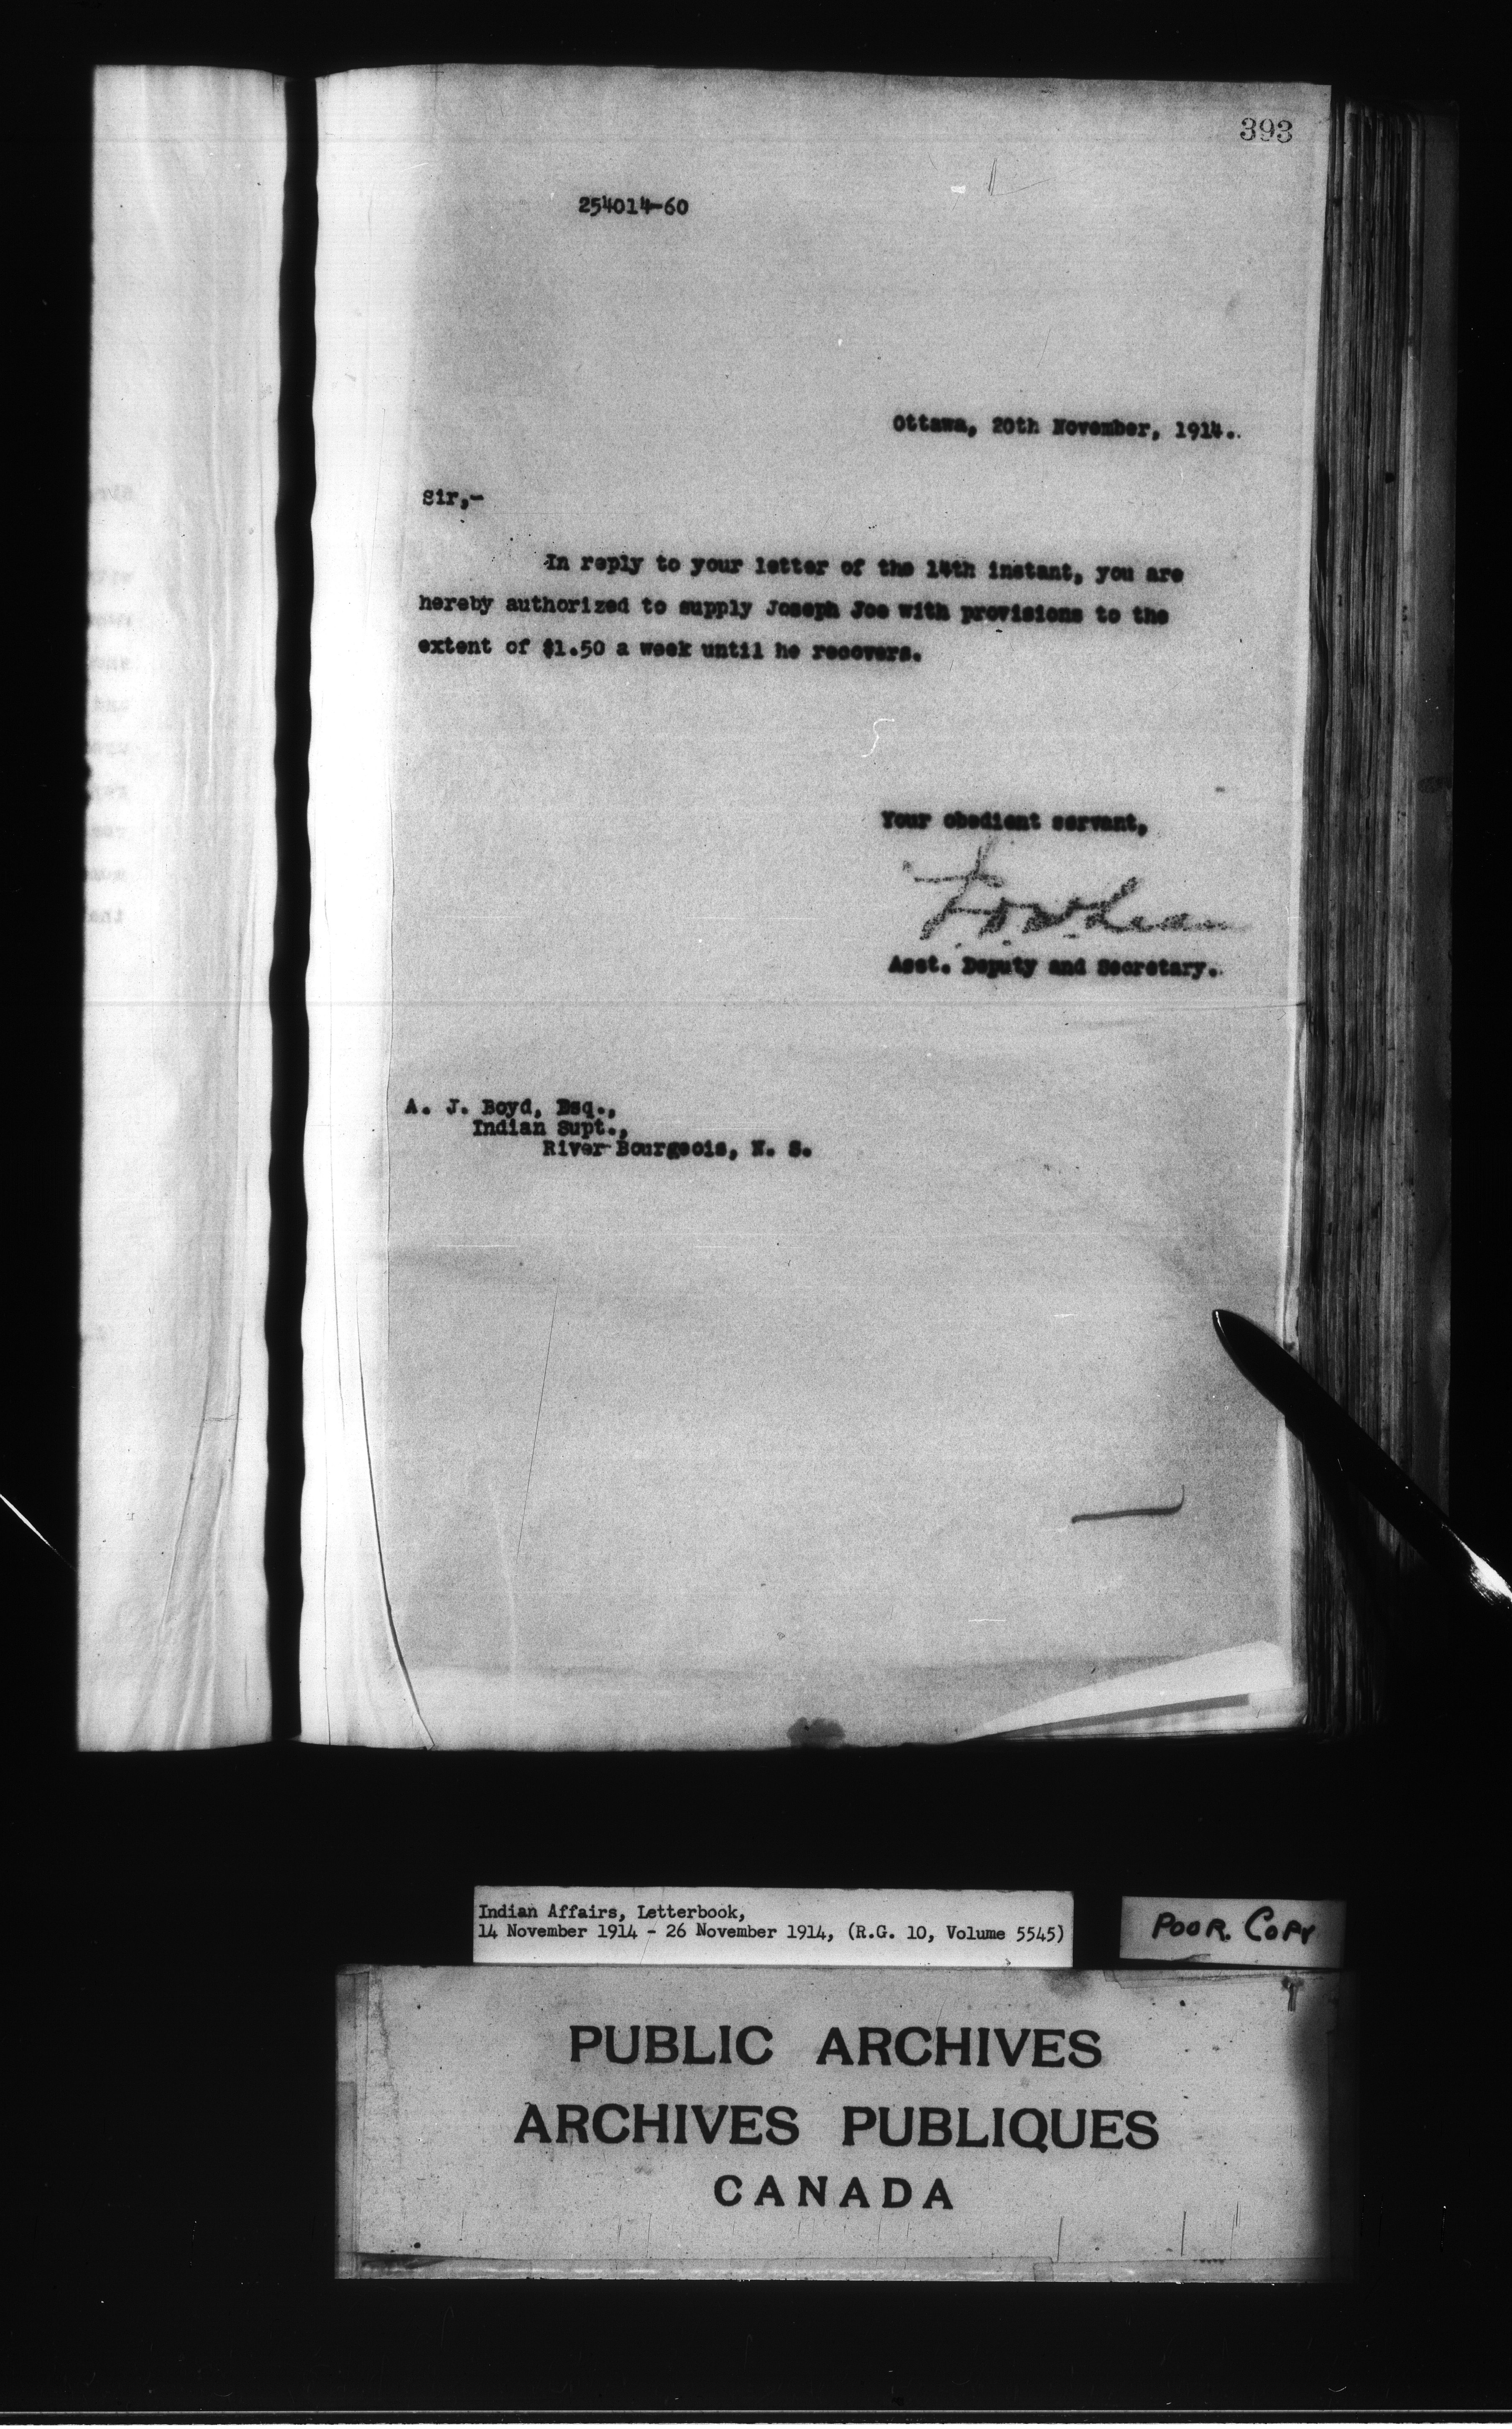 393
254014-60
Ottawa, 20th November, 1914.
Sir,-
In reply to your letter of the 14th instant, you are
hereby authorized to supply Joseph Joe with provisions to the
extent of $1.50 a week until he recovers.
Your obedient servant,
Asst. Deputy and Secretary.
A. J. Boyd, Esq.,
Indian Supt.,
River Bourgeois, N. S.
Indian Affairs, Letterbook,
14 November 1914 - 26 November 1914, (R.G. 10, Volume 5545)
POOR COPY
PUBLIC ARCHIVES
ARCHIVES PUBLIQUES
CANADA